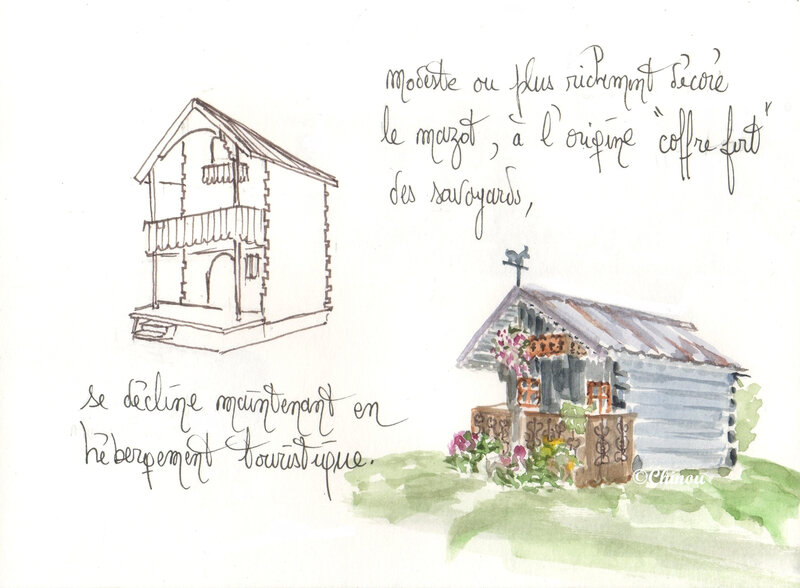 modeste ou plus richement décoré
le mazot, à l'origine "coffre fort"
des savoyards,
se décline maintenant en
hébergement touristique.
©Chinou